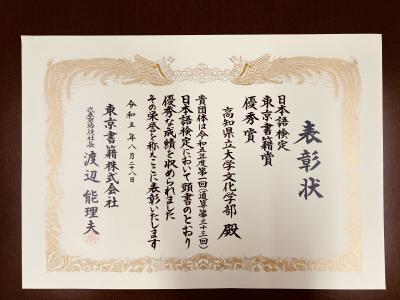 表彰状
日本語検定
東京書籍賞
優秀賞
高知県立大学文化学部 殿
貴団体は令和五年度第一回（通算第三十三回）
日本語検定において頭書のとおり
優秀な成績を収められました
その栄誉を称えここに表彰いたします
令和五年八月二十八日
東京書籍株式会社
代表取締役社長 渡辺能理夫